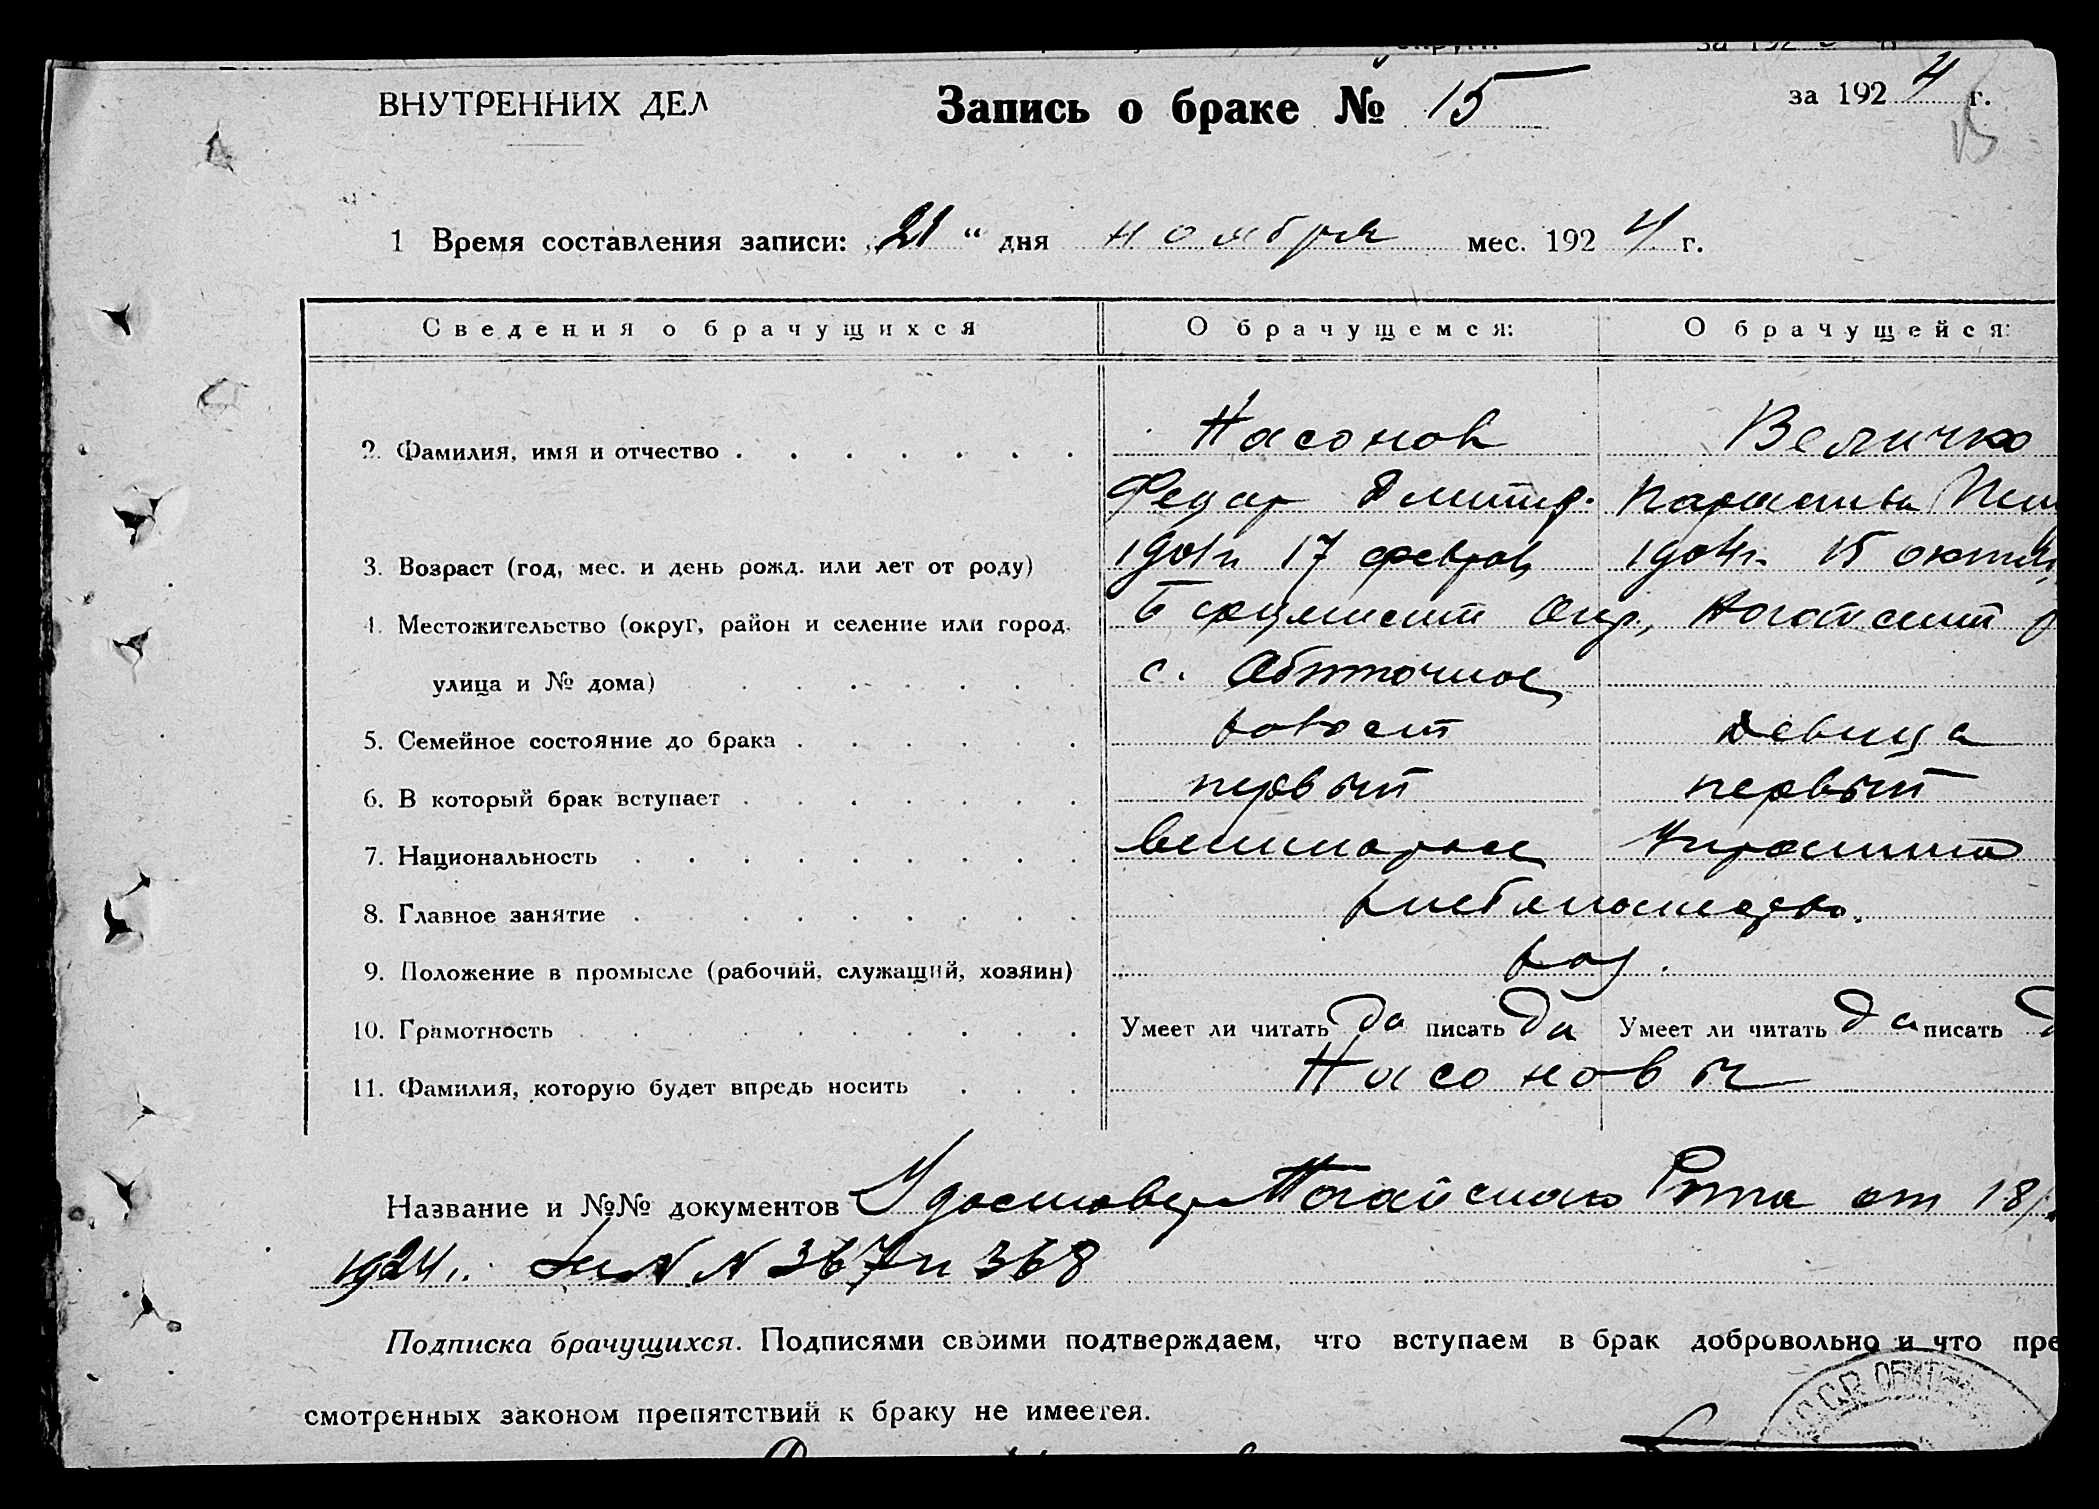 ВНУТРЕННИХ ДЕЛ
Запись о браке № 15
за 1924 г.
15
1 Время составления записи: „21“ дня ноября мес. 1924 г.
Сведения о брачущихся О брачущемся: О брачущейся:
2. Фамилия, имя и отчество Насонов Величко
Федор Дмитр.
3. Возраст (год, мес. и день рожд. или лет от роду) 1901 г. 17 феврал 1904 г. 15 октяб
4. Местожительство (округ, район и селение или город, Окр., Ногайский р
улица и № дома) с. Обиточное
5. Семейное состояние до брака холост девица
6. В который брак вступает первый первый
7. Национальность Украинка
8. Главное занятие хлебопашество.
9. Положение в промысле (рабочий, служащий, хозяин) хоз.
10. Грамотность Умеет ли читать да писать да Умеет ли читать да писать д
11. Фамилия, которую будет впредь носить Насоновы
Название и №№ документов Удостовер Ногайского от 18/
1924 г. за № № 367 и 368
Подписка брачущихся. Подписями своими подтверждаем, что вступаем в брак добровольно и что пре
смотренных законом препятствий к браку не имеется.